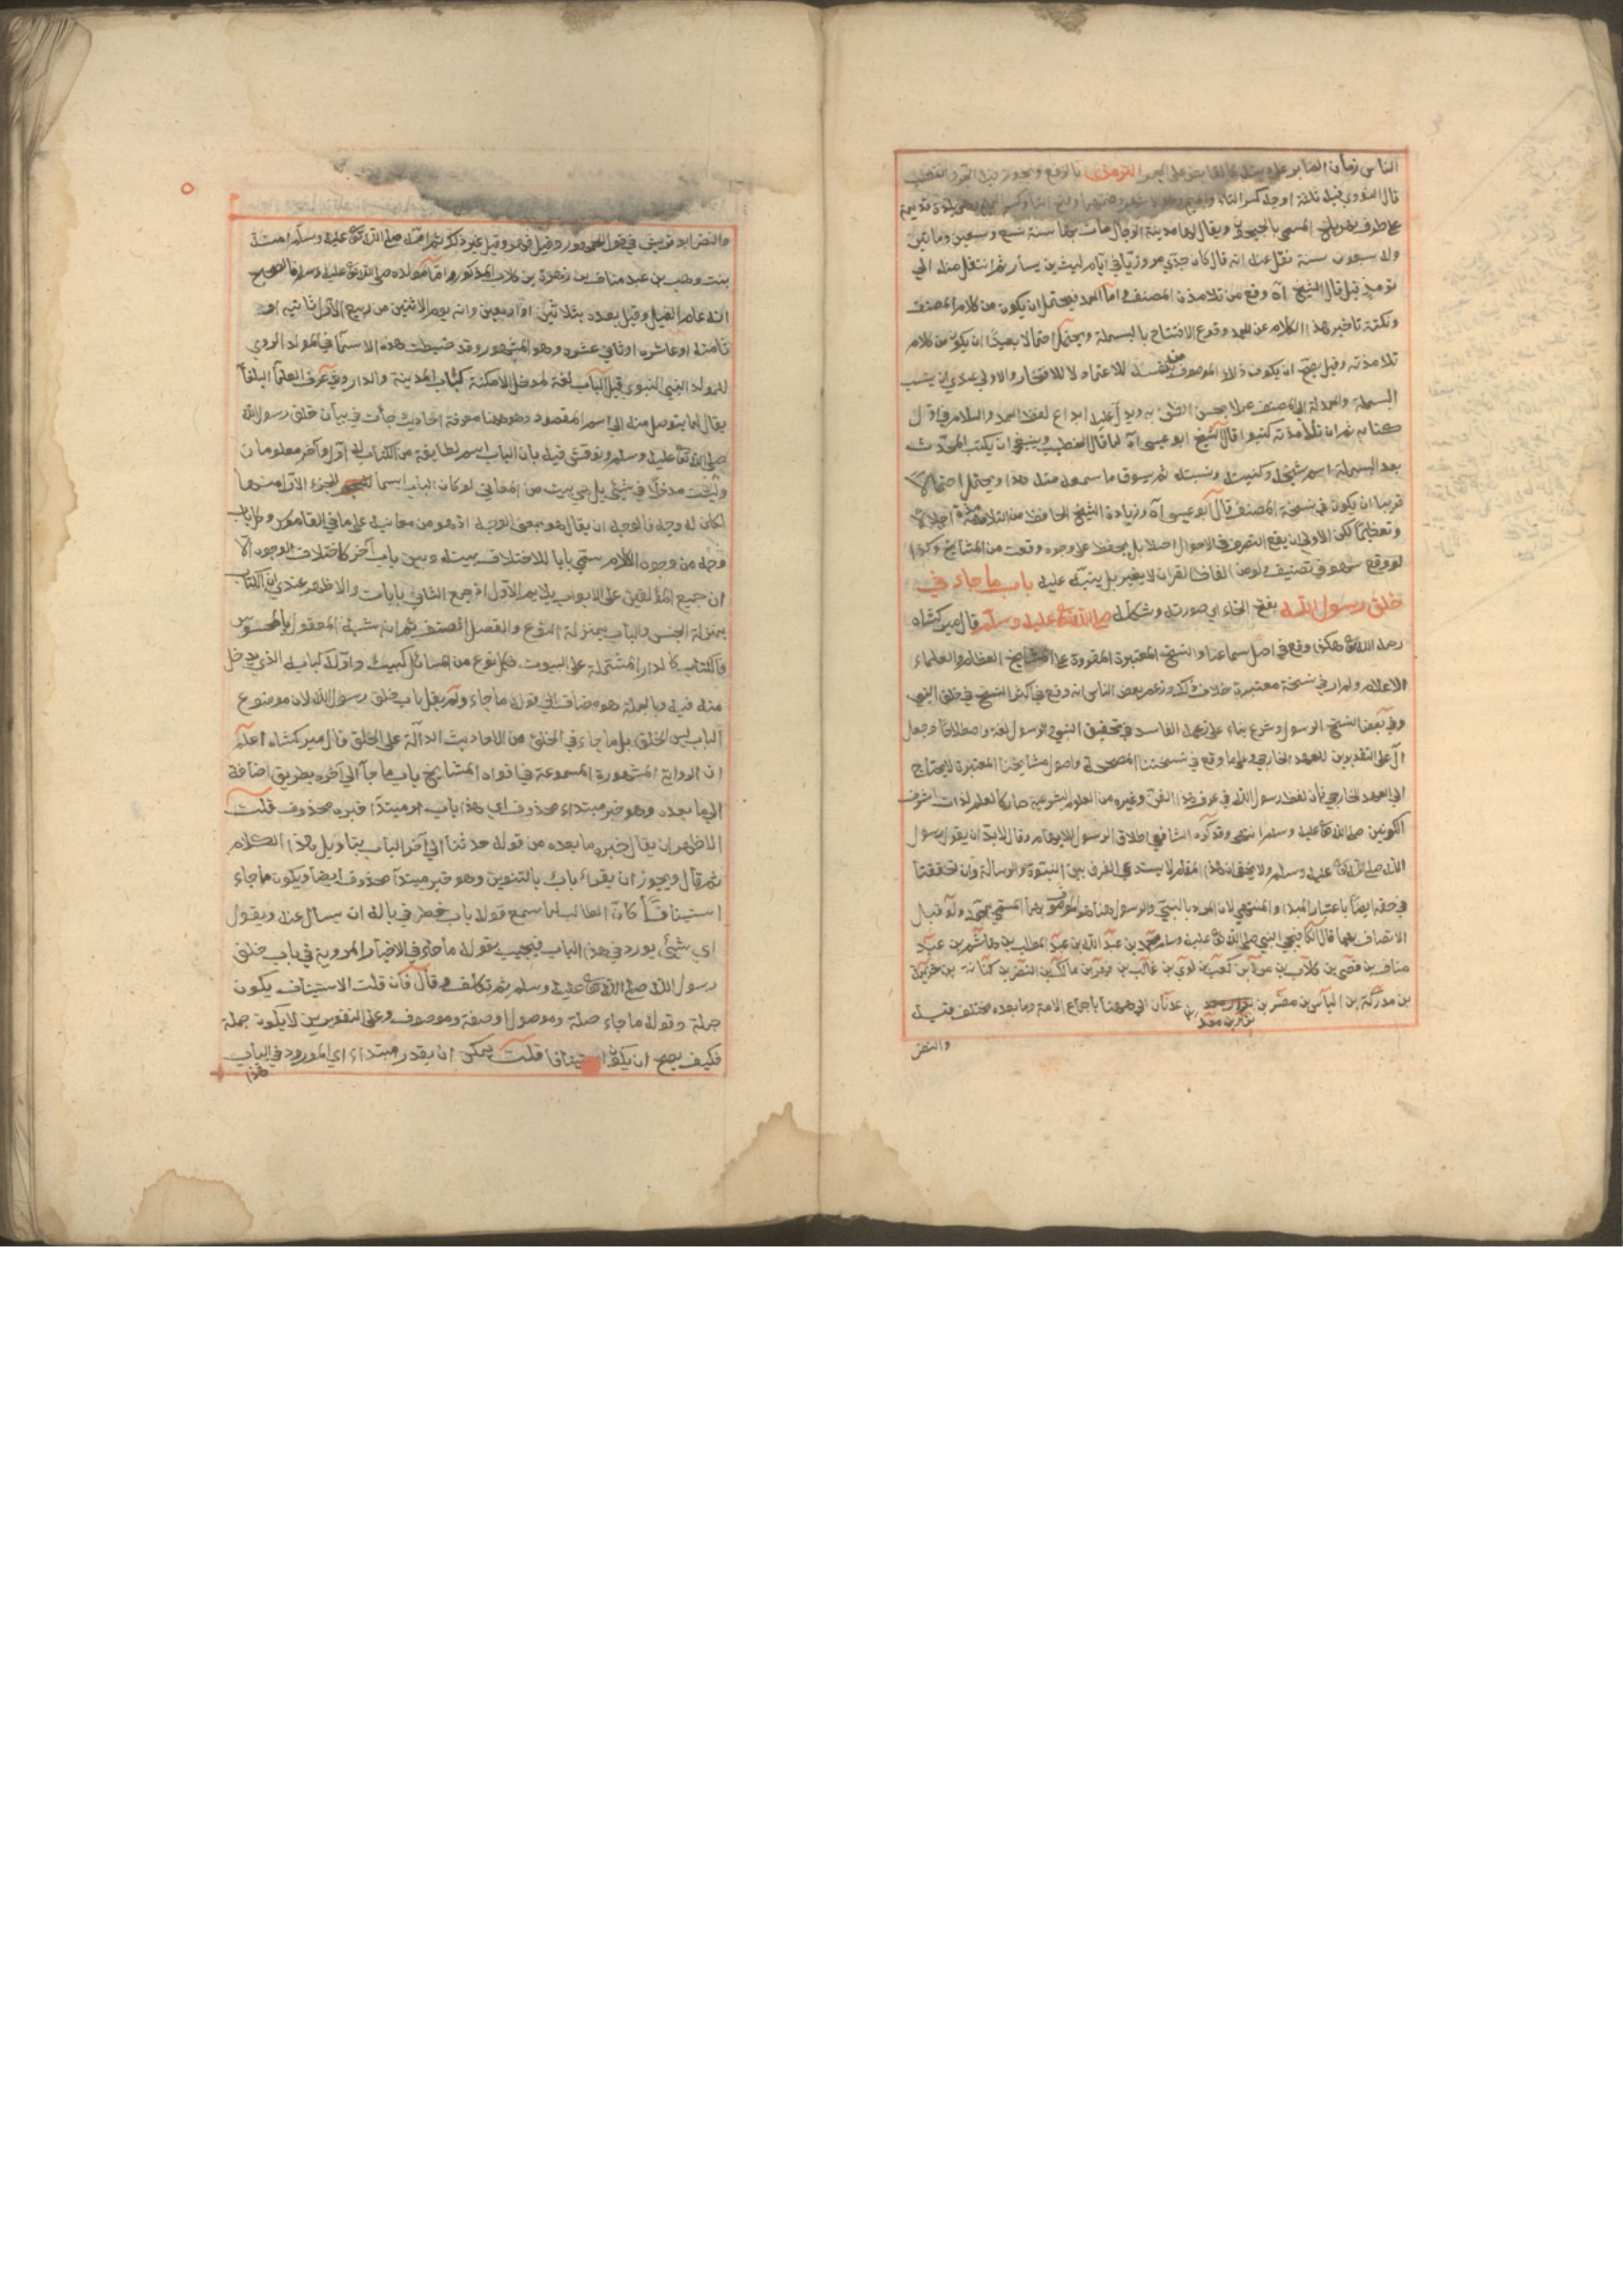 الناس زمان الصابر على دينه كالقابض على الجمر الترمذي بالرفع ويجوز فيه الجر والنصب
قال النووي فيه ثلثة اوجه كسر التاء والميم وهو الاشهر وضمهما وفتح التاء وكسر الميم وهي بلدة قديمة
على طرف نهر بلخ المسمى بالجيحون ويقال لها مدينة الرجال مات بها سنة تسع وسبعين ومائتين
وله سبعون سنة نقل عنه انه قال كان جدي مروزيا في ايام ليث بن يسار ثم انتقل منه الى
ترمذ قيل قال الشيخ آه وقع من تلامذة المصنف واما الحمد فيحتمل ان يكون من كلام المصنف
ونكتة تاخير هذا الكلام عن الحمد وقوع الافتتاح بالبسملة ويحتمل احتمالا بعيدا ان يكون من كلام
تلامذته وقيل يصح ان يكون ذلك الموصوف من نفسه للاعتماد لا للافتخار والاولى عندي ان ينسب
البسملة والحمدلة الى المصنف عملا بحسن الظن به ويدل عليه ابداع لفظ الحمد والسلام في اول
كتابه ثم ان تلامذته كتبوا قال الشيخ ابو عيسى آه لما قال الخطيب وينبغي ان يكتب المحدث
بعد البسملة اسم شيخه وكنيته ونسبته ثم يسوق ما سمعه منه هذا ويحتمل احتمالا
قريبا ان يكون في نسخة المصنف قال ابو عيسى آه وزيادة الشيخ الحافظ من التلامذة اجلالا
وتعظيما لكن الاولى ان يقع التصرف في الاصول اصلا بل يحفظ على وجوه وقعت من المشايخ وكذا
لو وقع سهو في تصنيف ولو من الفاظ القران لا يغير بل ينبه عليه باب ما جاء في
خلق رسول الله بفتح الخاء اي صورته وشكله صلى الله تعالى عليه وسلم قال ميركشاه
رحمه الله تعالى هكذا وقع في اصل سماعنا والنسخ المعتبرة المقروة على المشايخ العظام والعلماء
الاعلام ولم ار في نسخة معتبرة خلاف ذلك وزعم بعض الناس انه وقع في اكثر النسخ في خلق النبي
وفي بعض النسخ الرسول وشرع بناء على زعمه الفاسد في تحقيق النبي والرسول لغة واصطلاحا وجعل
ال على التقديرين للعهد الخارجي وعلى ما وقع في نسختنا المصححة واصول مشايخنا المعتبرة لا يحتاج
الى العهد الخارجي فان لفظ رسول الله في عرف هذا الفن وغيره من العلوم الشرعية صار كالعلم لذات اشرف
الكونين صلى الله تعالى عليه وسلم انتهى وقد كره الشافعي اطلاق الرسول للابهام وقال لابد ان يقول رسول
الله صلى الله تعالى عليه وسلم ولا يخفى ان هذا المقام لا يستدعي الفرق بين النبوة والرسالة وان تحققتا
في حقه ايضا باعتبار المبدا والمنتهى لان المراد بالنبي والرسول هنا هو الموصوف بهما المسمى بمحمد ولو قبل
الاتصاف بهما قال الكافيجي النبي صلى الله تعالى عليه وسلم محمد بن عبد الله بن عبد المطلب بن هاشم بن عبد
مناف بن قصي بن كلاب بن مرة بن كعب بن لوي بن غالب بن فهر بن مالك بن النضر بن كنانة بن خزيمة
بن مدركة بن الياس بن مضر بن نزار بن معد بن عدنان الى ههنا باجماع الامة وما بعده مختلف فيه
والنضر
والنضر ابو قريش في قول الجمهور وقيل فهر وقيل غير ذلك ثم امه صلى الله تعالى عليه وسلم امنة
بنت وهب بن عبد مناف بن زهرة بن كلاب المذكور واما مولده صلى الله تعالى عليه وسلم فالصحيح
انه عام الفيل وقيل بعده بثلاثين او اربعين وانه يوم الاثنين من ربيع الاول ثانيه او
ثامنه او عاشره او ثاني عشره وهو المشهور وقد ضبطت هذه الاسماء في المورد الروي
للمولد النبي النبوي قيل الباب لغة لمدخل الامكنة كباب المدينة والدار وفي عرف العلماء البلغاء
يقال لما يتوصل منه الى اسم المقصود وهو ههنا معرفة احاديث جاءت في بيان خلق رسول الله
صلى الله تعالى عليه وسلم ونوقش فيه بان الباب اسم لطايفة من الكتاب له اول واخر معلومان
وليست مدخلا في شئ بل هي بيت من المعاني لو كان الباب اسما للجزء الاول منها
لكان له وجه فالوجه ان يقال هو بمعنى الوجه اذ هو من معانيه على ما في القاموس وكل باب
وجه من وجوه الكلام سمي بابا للاختلاف بينه وبين باب آخر كاختلاف الوجوه الا
ان جميع المؤلفين على الابواب يلايم الاول اذ جمع الثاني بابات والاظهر عندي ان الكتاب
بمنزلة الجنس والباب بمنزلة النوع والفصل الصنف ثم انه شبه المعقول بالمحسوس
فالكتاب كالدار المشتملة على البيوت فكل نوع من المسائل كبيت واوله كبابه الذي يدخل
منه فيه وبالجملة هو مضاف الى قوله ما جاء ولم يقل باب خلق رسول الله لان موضوع
الباب ليس الخلق بل ما جاء في الخلق من الاحاديث الدالة على الخلق قال ميركشاه اعلم
ان الرواية المشهورة المسموعة في افواه المشايخ باب ما جاء الى آخره بطريق اضافة
الى ما بعده وهو خبر مبتداء محذوف اي هذا باب او مبتدا خبره محذوف قلت
الاظهر ان يقال خبره ما بعده من قوله حدثنا الى آخر الباب بتاويل هذا الكلام
ثم قال ويجوز ان يقراء باب بالتنوين وهو خبر مبتدا محذوف ايضا ويكون ما جاء
استينافا كان الطالب لما سمع قوله باب خطر في باله ان يسال عنه ويقول
اي شئ يورد في هذا الباب فيجيب بقوله ما جاء في الاخبار المروية في باب خلق
رسول الله صلى الله تعالى عليه وسلم ثم تكلف وقال فان قلت الاستيناف يكون
جملة وقوله ما جاء صلة وموصول او صفة وموصوف وعلى التقديرين لا يكون جملة
فكيف يصح ان يكون استينافا قلت يمكن ان يقدر مبتداء اي المورود في الباب
هذا